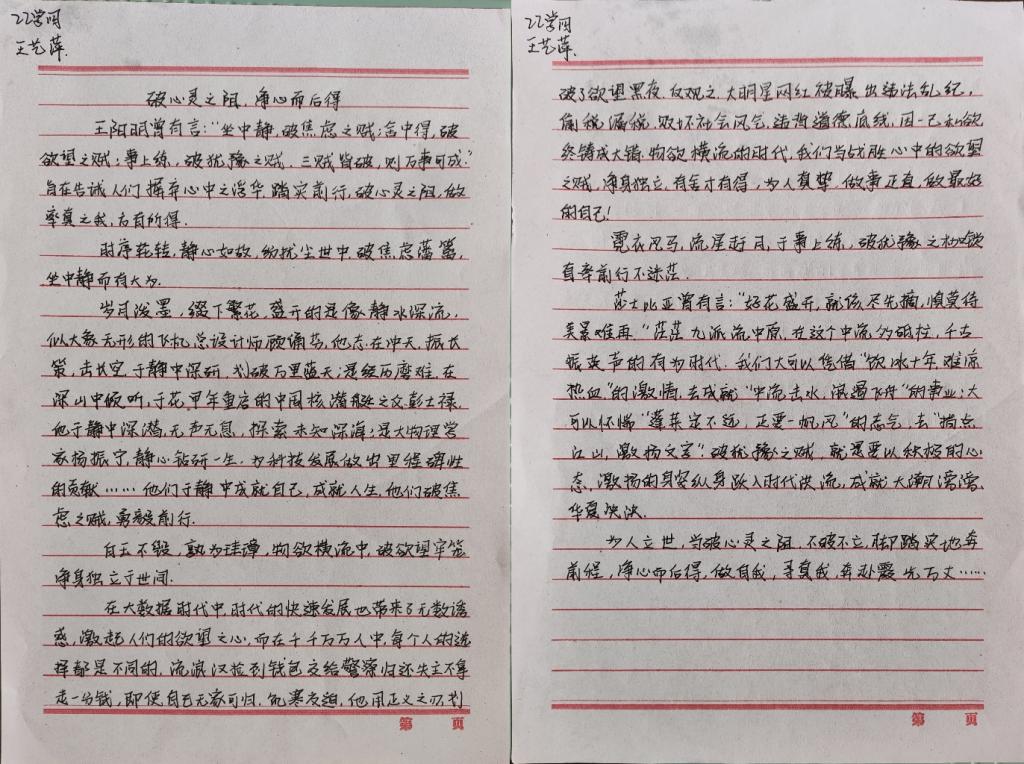 22学网
王艺萍.
破心灵之阻,净心而后得
王阳明曾有言:“坐中静,破焦虑之贼;舍中得,破
欲望之贼;事上练,破犹豫之贼.三贼皆破,则万事可成.”
旨在告诫人们摒弃心中之浮华,踏实前行,破心灵之阻,做
率真之我,方有所得.
时序轮转,静心如故,纷扰尘世中,破焦虑藩篱,
坐中静而有大为.
岁月泼墨,缀下繁花,盛开的是像静水深流,
似大象无形的飞机总设计师顾诵芬,他志在冲天,振长
策,击长空,于静中深研,划破万里蓝天;是经历磨难,在
深山中倾听,于花甲年重启的中国核潜艇之父彭士禄,
他于静中深潜,无声无息,探索未知深海;是大物理学
家杨振宁,静心钻研一生,为科技发展做出里程碑性
的贡献……他们于静中成就自己,成就人生,他们破焦
虑之贼,勇毅前行.
白玉不毁,孰为珪璋,物欲横流中,破欲望牢笼
净身独立于世间.
在大数据时代中,时代的快速发展也带来了无数诱
惑,激起人们的欲望之心,而在千千万万人中,每个人的选
择都是不同的.流浪汉捡到钱包交给警察归还失主不拿
走一分钱,即使自己无家可归,饥寒交迫,他用正义之刃划
第 页
22学网
王艺萍.
破了欲望黑夜.反观之,大明星网红被曝出违法乱纪,
偷税漏税,败坏社会风气,违背道德底线,因一己私欲
终铸成大错.物欲横流的时代,我们当战胜心中的欲望
之贼,净身独立,有舍才有得,为人真挚,做事正直,做最好
的自己!
霓衣风马,流星赶月,于事上练,破犹豫之
直率前行不迷茫.
莎士比亚曾有言:“好花盛开,就该尽先摘,慎莫待
美景难再.”茫茫九派流中原,在这个中流为砥柱,千古
振英节的有为时代.我们大可以凭借“饮冰十年,难凉
热血”的激情,去成就“中流击水,浪遏飞舟”的事业;大
可以怀惴“蓬莱定不远,正要一帆风”的志气,去“指点
江山,激扬文字”.破犹豫之贼,就是要以积极的心
态,激扬的身姿纵身跃入时代洪流,成就大潮濡濡,
华夏泱泱.
为人立世,当破心灵之阻,不破不立,脚踏实地奔
前程,净心而后得,做自我,寻真我,奔赴霞光万丈……
第 页